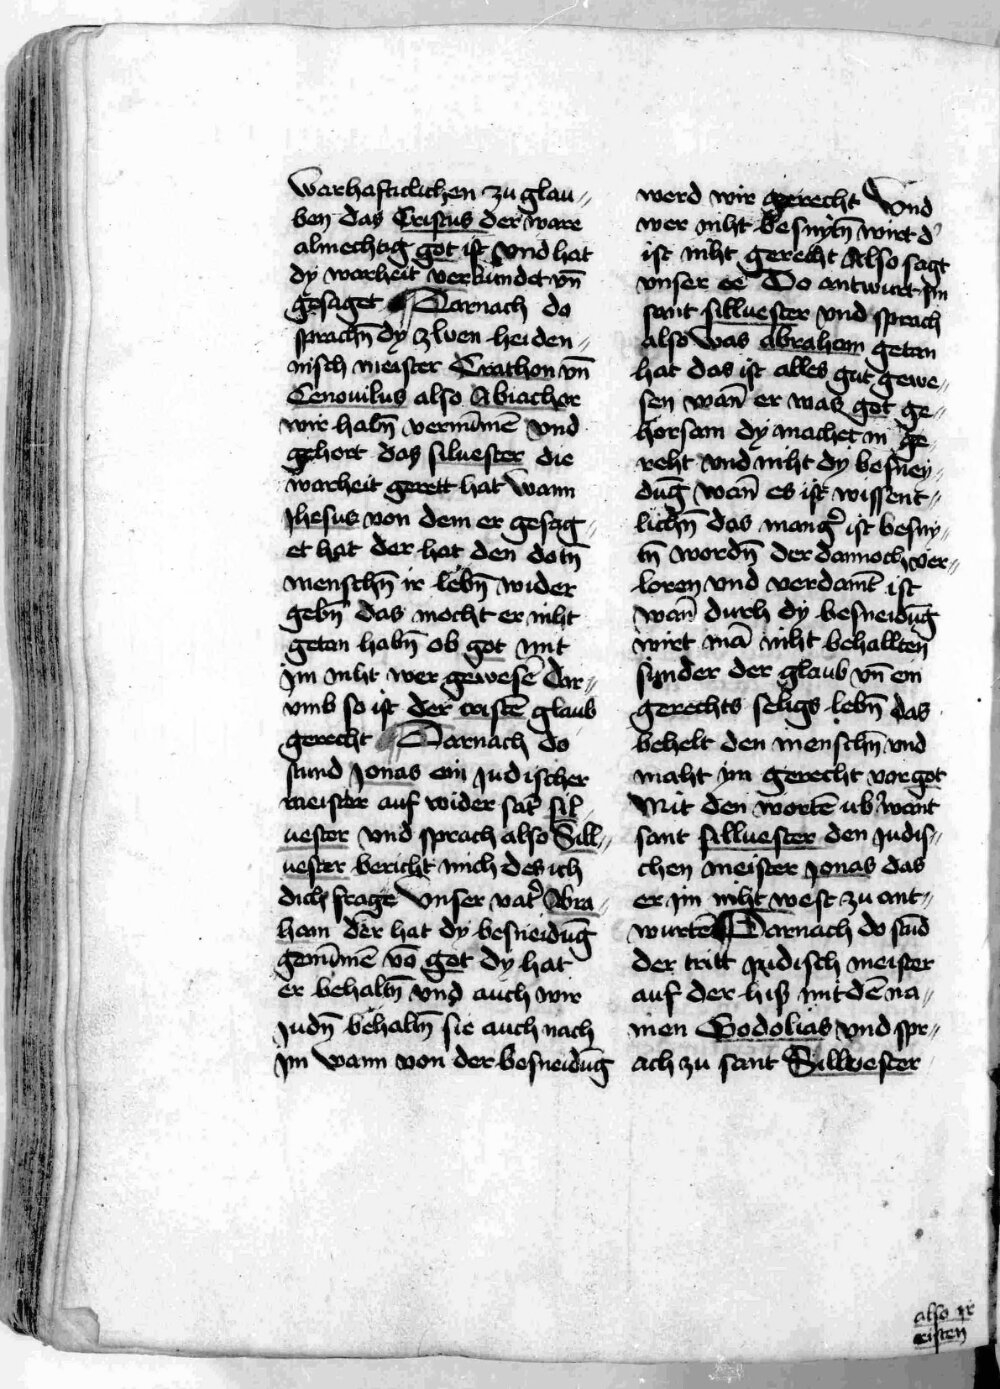 warhafticlichen zu glau〃
ben das Cristus der ware
almechtig got ist vnd hat
dy warheit verkundet vn̄
gesaget Darnach do
sprachn̄ dy zwen heiden〃
nisch meister Crathon vn̄
Cenouilus also Abiathor
wir habn̄ vernūmē vnd
gehort das siluester die
warheit gerett hat wann
Jhesus von dem er gesag〃
et hat der hat den dotn̄
menschn̄ ir lebn̄ wider
gebn̄ das mocht er niht
getan habn̄ ob got mit
jm niht wer gewesē Dar〃
vmb so ist der cristē glaub
gerecht Darnach do
stund Jonas ein Judischer
meister auf wider sāt sil〃
uester vnd sprach also Sill〃
uester bericht mich des ich
dich frage Vnser vat̾ Abra〃
ham der hat dy besneidūg
genūmē vō got dy hat
er behaltn̄ vnd auch wir
Judn̄ behaltn̄ sie auch nach
jm wann von der besneidūg
werd wir gerecht Vnd
wer niht besnytn̄ wirt d̾
ist niht gerecht Also sagt
vnser ee Do antwurt jm
sant silluester vnd sprach
also was abraham getan
hat das ist alles gut gewe〃
sen wan̄ er was got ge〃
horsam dy machet in ge〃
reht vnd niht dy besney〃
dūg wan̄ es ist wissent〃
lichn̄ das mang̾ ist besny〃
tn̄ wordn̄ der dannoch ver〃
loren vnd verdamt̄ ist
wan̄ durch dy besneidūg
wirt mā niht behallten
sunder der glaub vn̄ ein
gerechts seligs lebn̄ das
behelt den menschn̄ vnd
maht jm gerecht vor got
Mit den wortē vb̾want
sant silluester den judis〃
chen meister jonas das
er jm niht west zu ant〃
wurtē Darnach do stūd
der tritt judisch meister
auf der hiß mit dē na〃
men Godolias vnd spr〃
ach zu sant Silluester
also er
cisten